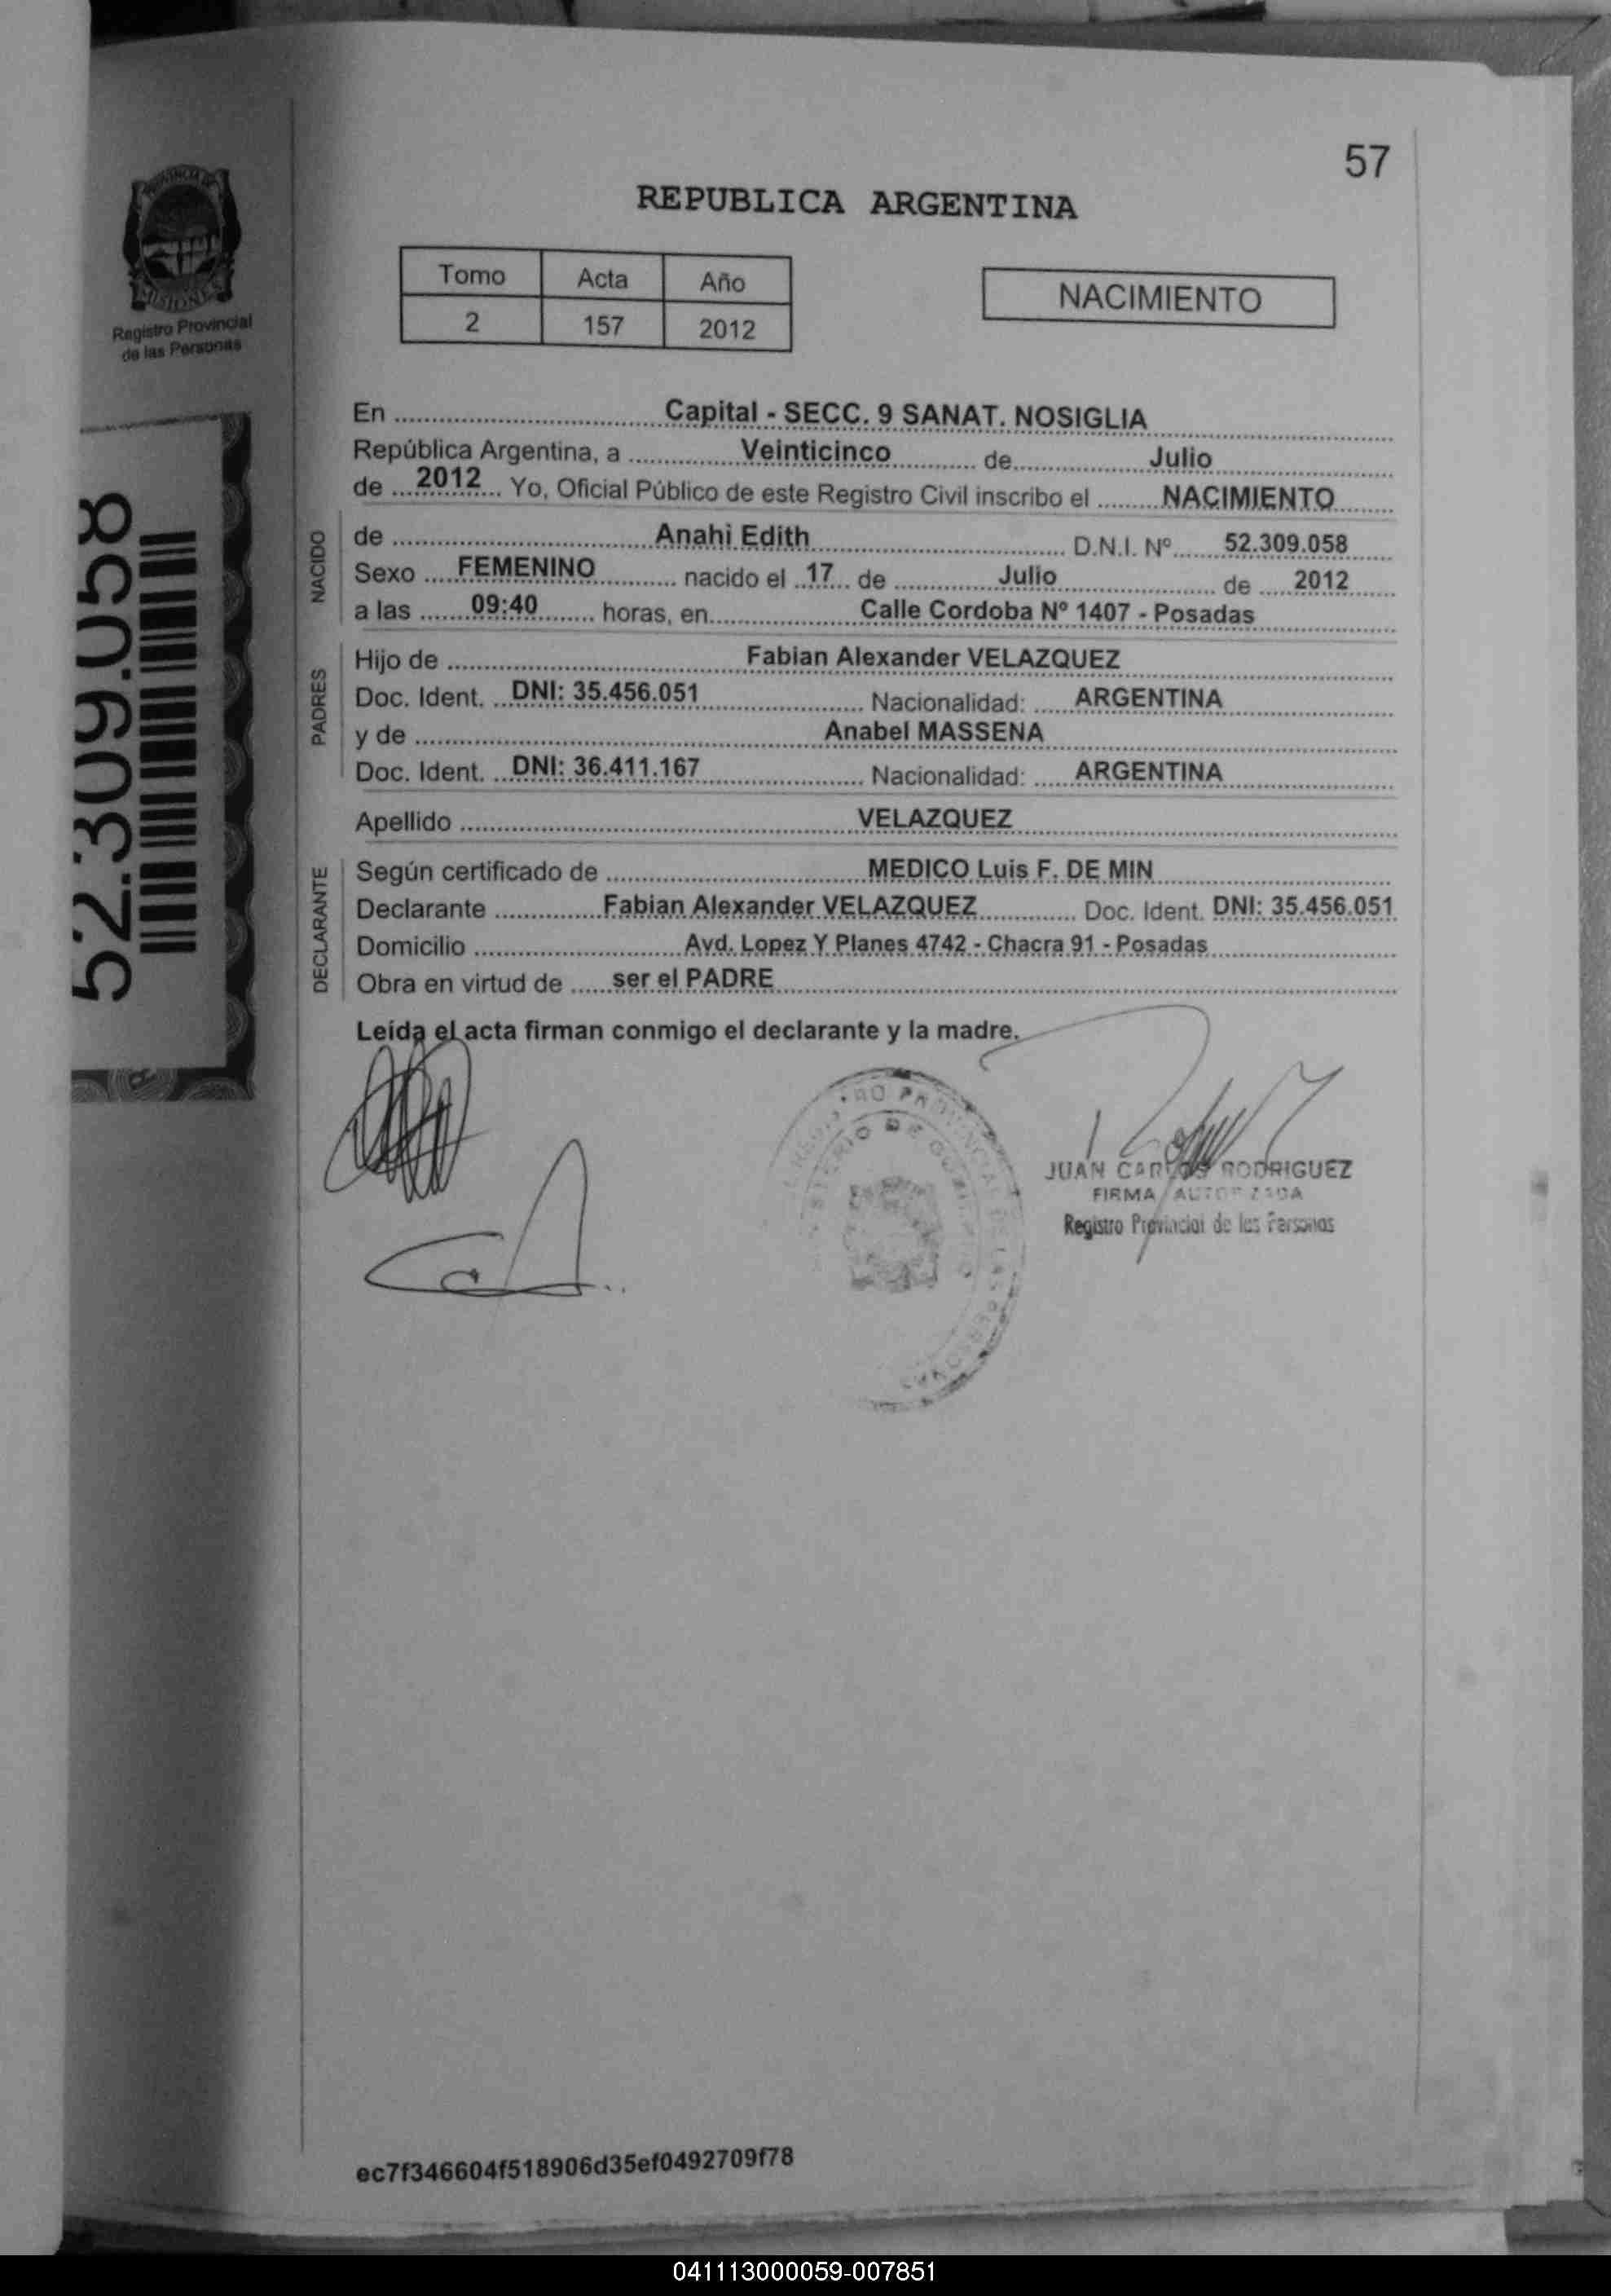 57
REPUBLICA ARGENTINA
PROVINCIA DE
MISIONES
Registro Provincial
de las Personas
Tomo Acta Año
2 157 2012
NACIMIENTO
52.309.058
En Capital - SECC. 9 SANAT. NOSIGLIA
República Argentina, a Veinticinco de Julio
de 2012 Yo, Oficial Público de este Registro Civil inscribo el NACIMIENTO
NACIDO
de Anahi Edith D.N.I. Nº 52.309.058
Sexo FEMENINO nacido el 17 de Julio de 2012
a las 09:40 horas, en Calle Cordoba Nº 1407 - Posadas
PADRES
Hijo de Fabian Alexander VELAZQUEZ
Doc. Ident. DNI: 35.456.051 Nacionalidad: ARGENTINA
y de Anabel MASSENA
Doc. Ident. DNI: 36.411.167 Nacionalidad: ARGENTINA
Apellido VELAZQUEZ
DECLARANTE
Según certificado de MEDICO Luis F. DE MIN
Declarante Fabian Alexander VELAZQUEZ Doc. Ident. DNI: 35.456.051
Domicilio Avd. Lopez Y Planes 4742 - Chacra 91 - Posadas
Obra en virtud de ser el PADRE
Leída el acta firman conmigo el declarante y la madre.
JUAN CARLOS RODRIGUEZ
FIRMA AUTORIZADA
Registro Provincial de las Personas
ec7f346604f518906d35ef0492709f78
041113000059-007851